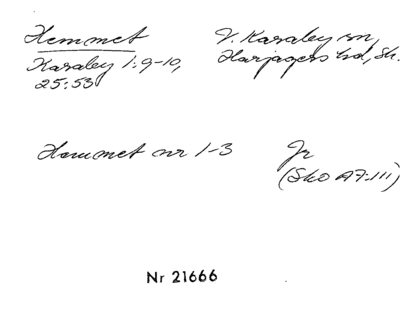 Hemmet
V. Karaby sn,
Karaby 1:9-10,
Harjagers hd, Sk.
25:53
Hemmet nr 1-3
Jr
(Sko A7:III)
Nr 21666